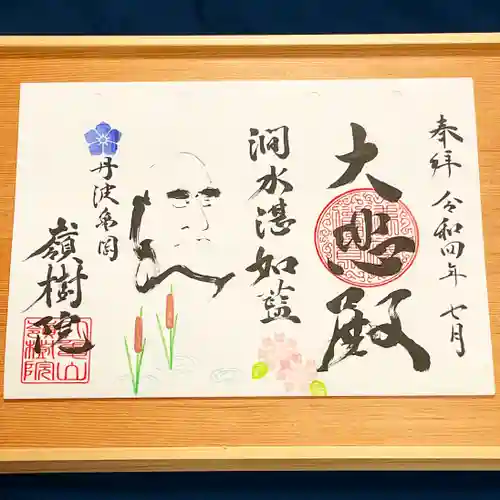 奉拝 令和四年 七月
大悲殿
澗水湛如藍
丹波亀岡
嶺樹院